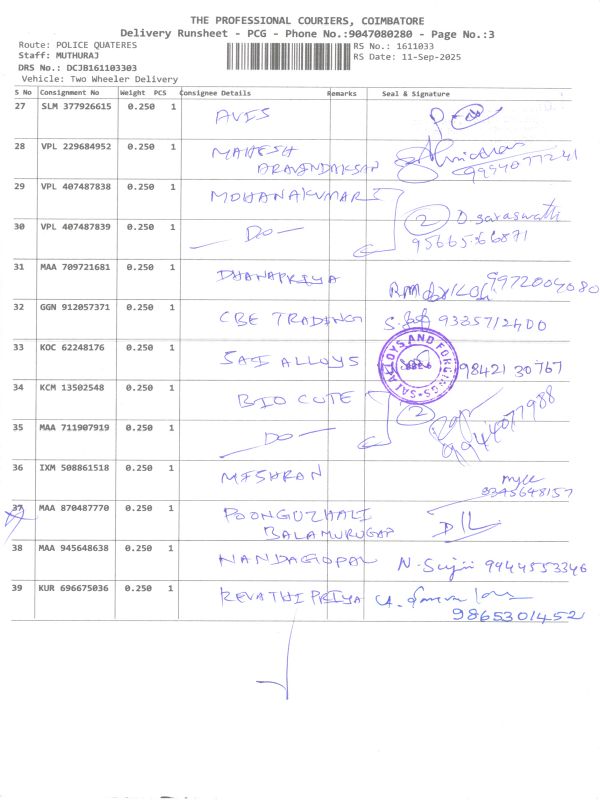 THE PROFESSIONAL COURIERS, COIMBATORE
Delivery Runsheet - PCG - Phone No.:9047080280 - Page No.:3
Route: POLICE QUATERES
RS No.: 1611033
Staff: MUTHURAJ
RS Date: 11-Sep-2025
DRS No.: DCJB161103303
Vehicle: Two Wheeler Delivery
S No Consignment No Weight PCS Consignee Details Remarks Seal & Signature
27 SLM 377926615 0.250 1 AVIS
28 VPL 229684952 0.250 1 MAHESH
ARAVINDAKSAN 9994077241
29 VPL 407487838 0.250 1 MOHANAKUMARI
2 D Saraswathi
30 VPL 407487839 0.250 1 — Do —
31 MAA 709721681 0.250 1 DHANAPRIYA 9972004080
32 GGN 912057371 0.250 1 CBE TRADING 9335712400
33 KOC 62248176 0.250 1 SAI ALLOYS 98421 30767
SAI ALLOYS AND FORGINGS
CBE-6
34 KCM 13502548 0.250 1 BIO CUTE
2 9944077988
35 MAA 711907919 0.250 1 — Do —
36 IXM 508861518 0.250 1 MISHRAN
37 MAA 870487770 0.250 1 POONGUZHALI
BALAMURUGAN
38 MAA 945648638 0.250 1 NANDAGOPAL 9444553346
39 KUR 696675036 0.250 1 REVATHI PRIYA
9865301452